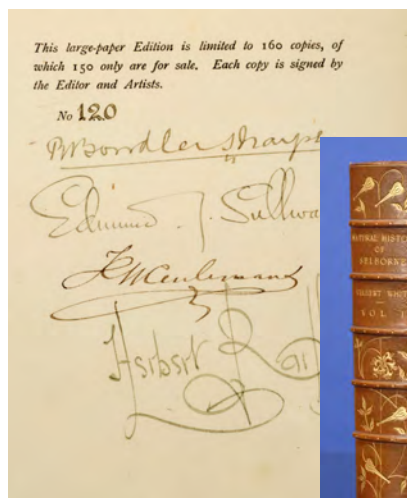 This large-paper Edition is limited to 160 copies, of
which 150 only are for sale. Each copy is signed by
the Editor and Artists.
No 120
R Bowdler Sharpe
Edmund J. Sulliva
Herbert Rail
NATURAL HISTO
OF
SELBORNE
GILBERT WHIT
VOL I